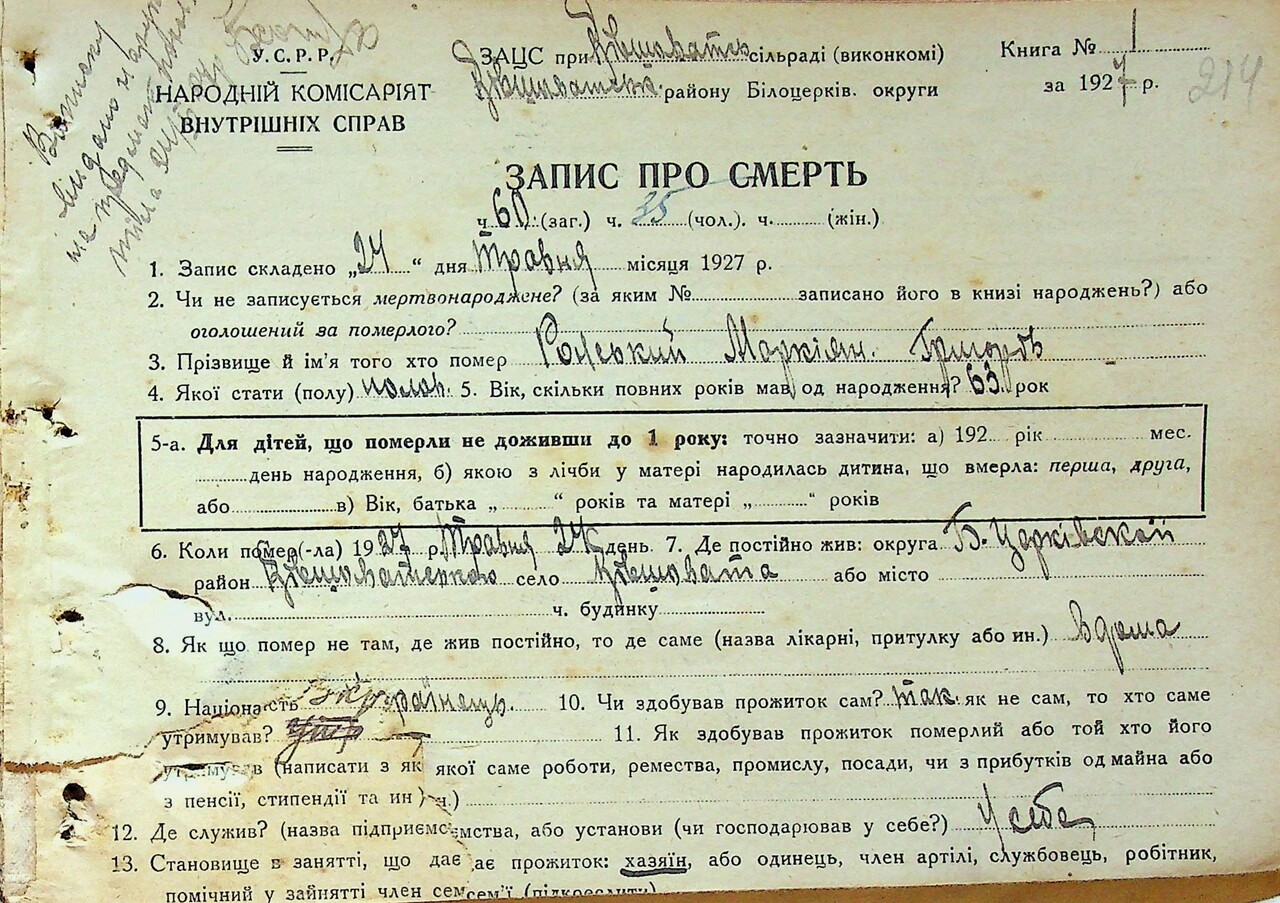 У.С.Р.Р.
НАРОДНІЙ КОМІСАРІЯТ
ВНУТРІШНІХ СПРАВ
ЗАЦС при сільраді (виконкомі)
району Білоцерків. округи
Книга № 1
за 1927 р.
214
ЗАПИС ПРО СМЕРТЬ
ч. 60 (заг.) ч. 25 (чол.). ч. (жін.)
1. Запис складено „24“ дня Травня місяця 1927 р.
2. Чи не записується мертвонароджене? (за яким № записано його в книзі народжень?) або
оголошений за померлого?
3. Прізвище й ім'я того хто помер Маркіян Григоров
4. Якої стати (полу) чолов. 5. Вік, скільки повних років мав од народження? 63 рок
5-а. Для дітей, що померли не доживши до 1 року: точно зазначити: а) 192 рік мес.
день народження, б) якою з лічби у матері народилась дитина, що вмерла: перша, друга,
або в) Вік, батька „ “ років та матері „ “ років
6. Коли помер(-ла) 1927 р. Травня 24 день. 7. Де постійно жив: округа Б-Церківской
район село або місто
вул. ч. будинку
8. Як що помер не там, де жив постійно, то де саме (назва лікарні, притулку або ин.) вдома
9. Націона сть Українець. 10. Чи здобував прожиток сам? так. як не сам, то хто саме
утримував? 11. Як здобував прожиток померлий або той хто його
утримував (написати з як якої саме роботи, ремества, промислу, посади, чи з прибутків од майна або
з пенсії, стипендії та ин ) н.)
12. Де служив? (назва підприємс ємства, або установи (чи господарював у себе?) У себе
13. Становище в занятті, що дає ає прожиток: хазяїн, або одинець, член артілі, службовець, робітник,
помічний у зайнятті член сем сем'ї (підкреслити)